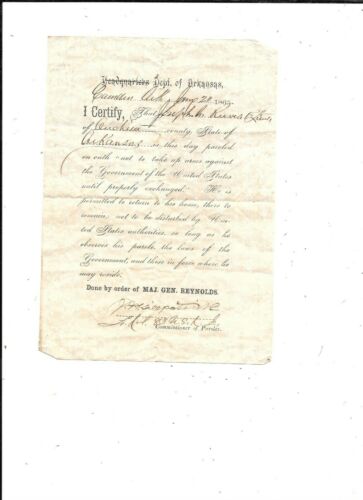 Headquarters Dept. of Arkansas,
Camden Ark, 1865.
I Certify, That
of Ouachita county, State of
Arkansas is this day paroled
on oath not to take up arms against
the Government of the United States
until properly exchanged. He is
permitted to return to his home, there to
remain, not to be disturbed by Uni-
ted States authorities, so long as he
observes his parole, the laws of the
Government, and those in force where he
may reside.
Done by order of MAJ. GEN. REYNOLDS.
Commissioner of Paroles.